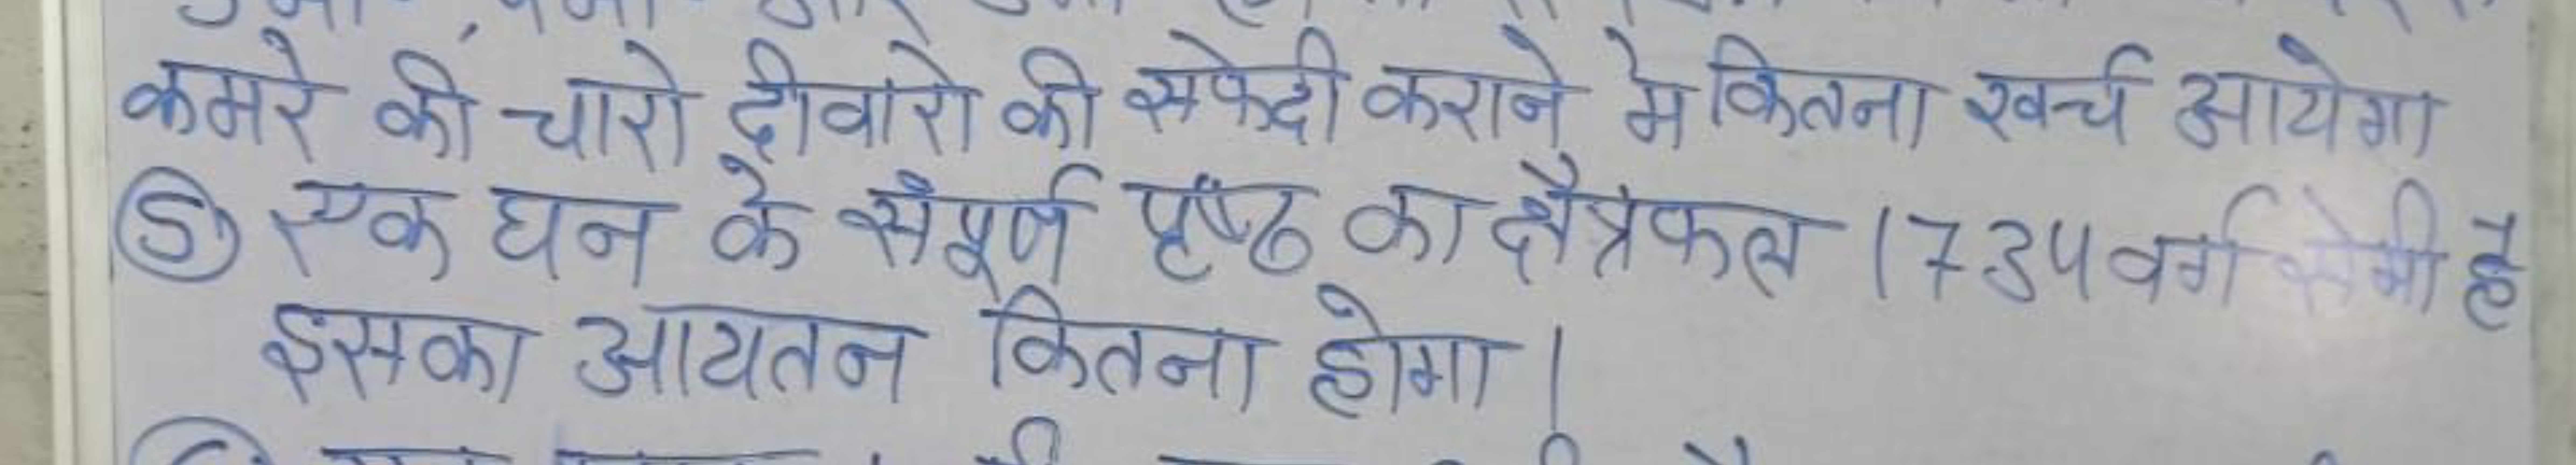 कमरे की चारो दीवारो की सफेदी कराने मे कितना खर्च आयेगा
⑤ एक घन के संपूर्ण पृष्ठ का क्षैत्रफल 1734 वर्ग सेमी है
इसका आयतन कितना होगा|